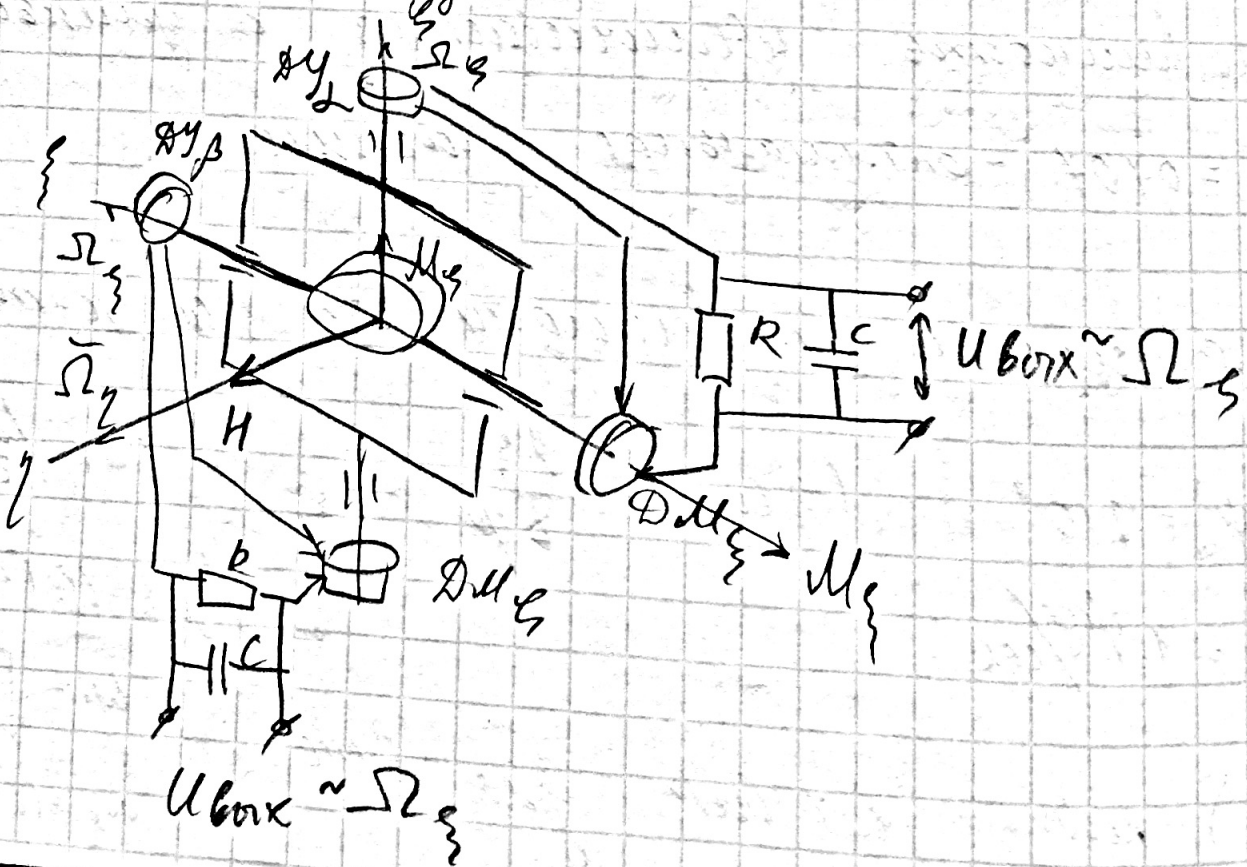 ζ
Ω_ζ
ДУ_α
ДУ_β
ξ
Ω_ξ
M_ζ
Ω_η
H
η
R
C
U вых ~ Ω_ζ
ДМ_ξ
M_ξ
R
C
ДМ_ζ
U вых ~ Ω_ξ